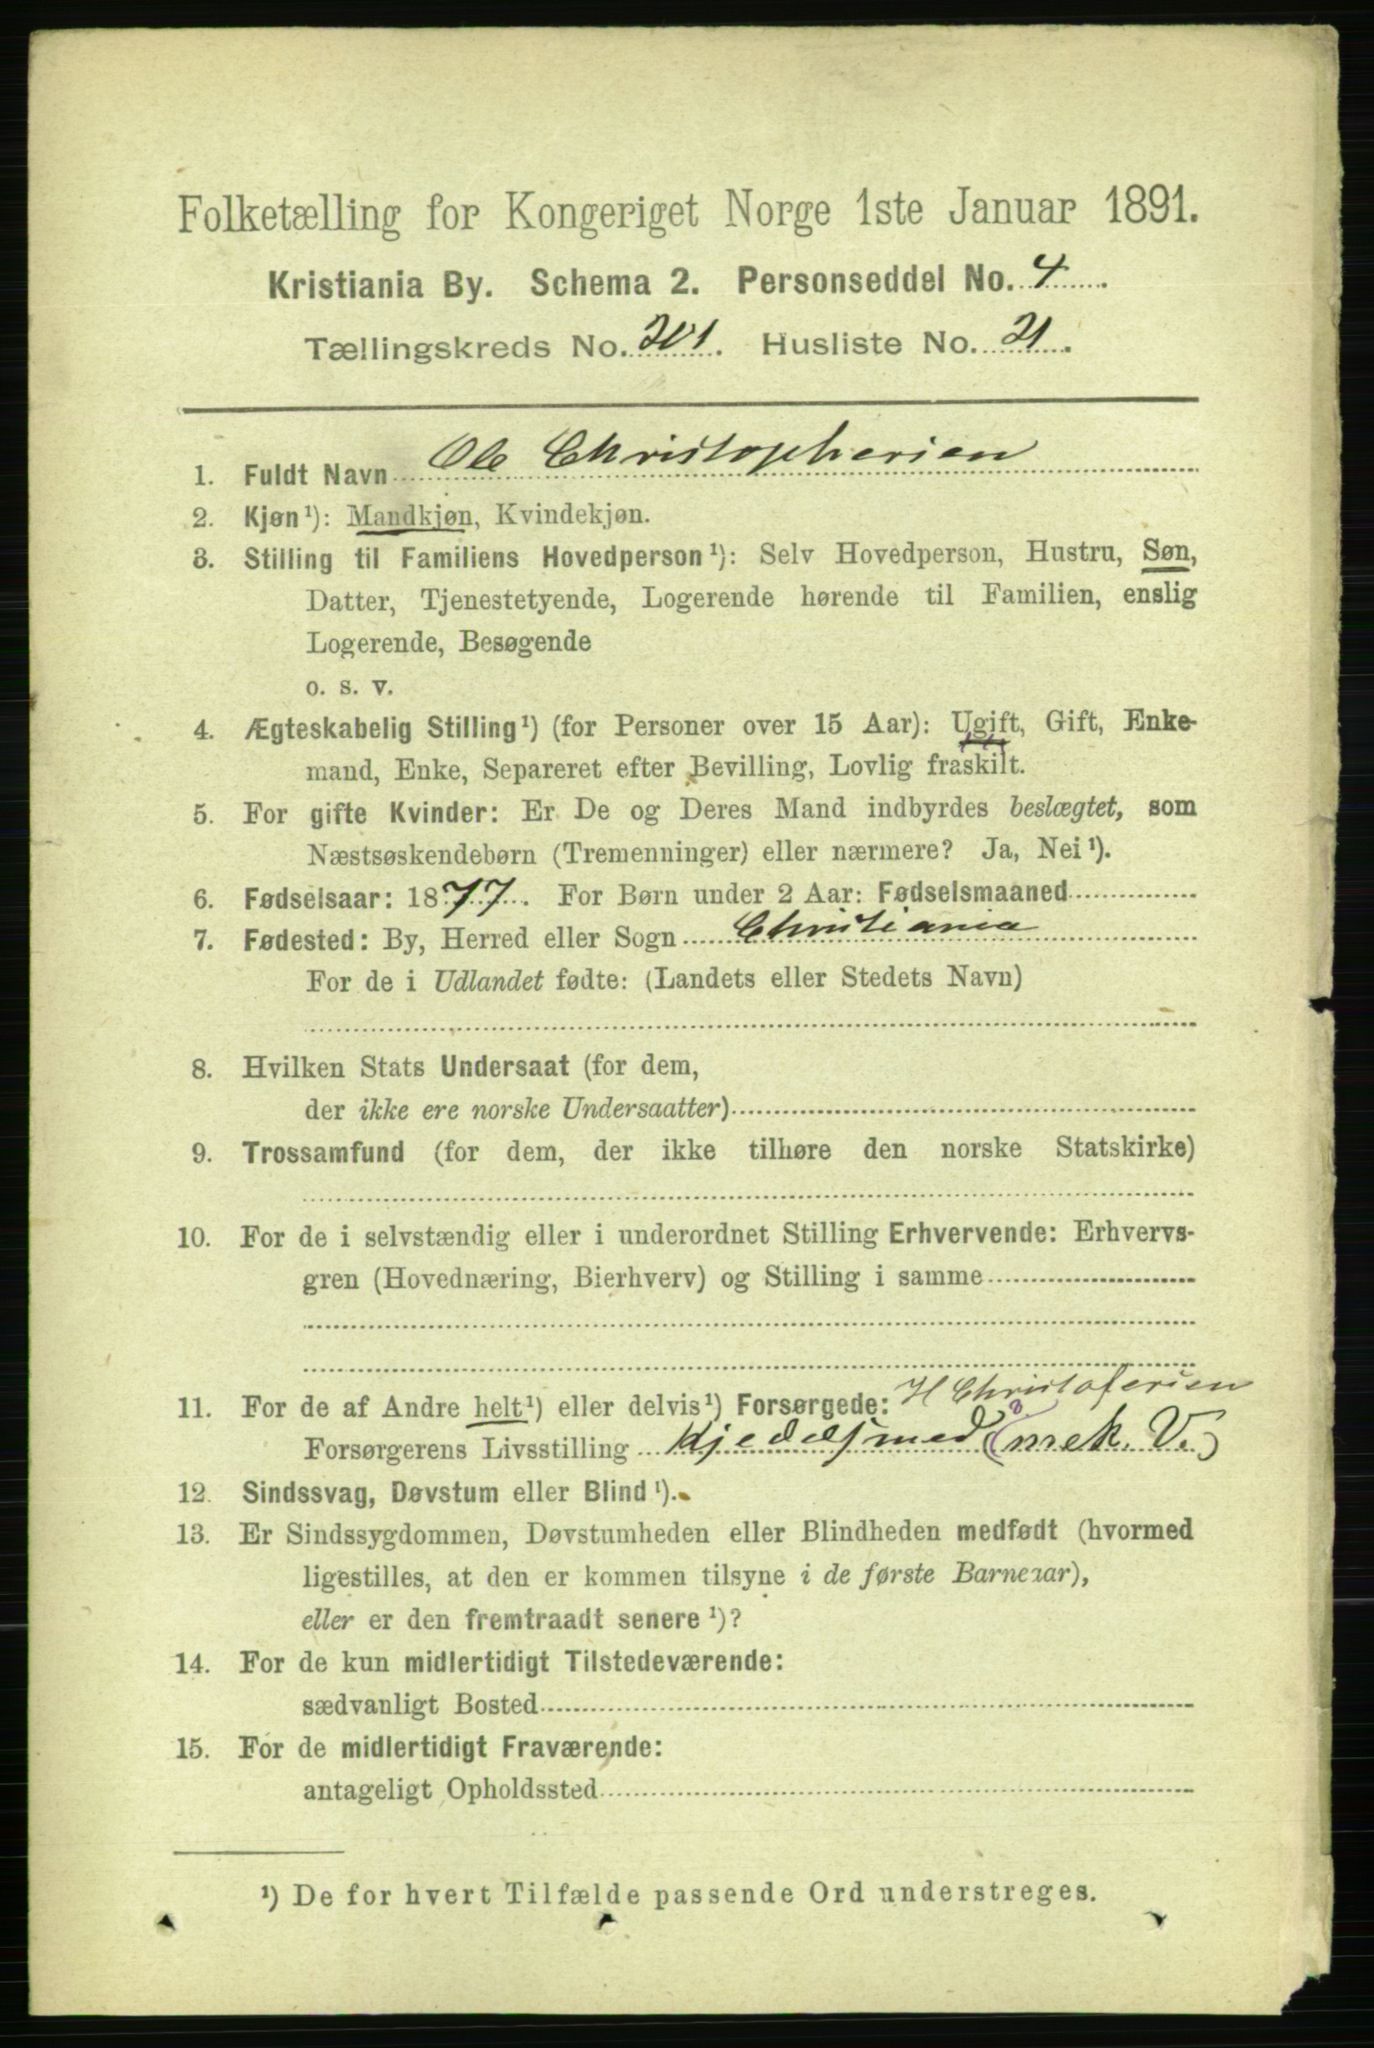 Folketælling for Kongeriget Norge 1ste Januar 1891.
Kristiania By. Schema 2. Personseddel No. 4
Tællingskreds No. 201. Husliste No. 21.
1. Fuldt Navn Ole Christophersen
2. Kjøn¹): Mandkjøn, Kvindekjøn.
3. Stilling til Familiens Hovedperson¹): Selv Hovedperson, Hustru, Søn,
Datter, Tjenestetyende, Logerende hørende til Familien, enslig
Logerende, Besøgende
o. s. v.
4. Ægteskabelig Stilling¹) (for Personer over 15 Aar): Ugift, Gift, Enke-
mand, Enke, Separeret efter Bevilling, Lovlig fraskilt.
5. For gifte Kvinder: Er De og Deres Mand indbyrdes beslægtet, som
Næstsøskendebørn (Tremenninger) eller nærmere? Ja, Nei¹).
6. Fødselsaar: 1877. For Børn under 2 Aar: Fødselsmaaned
7. Fødested: By, Herred eller Sogn Christiania
For de i Udlandet fødte: (Landets eller Stedets Navn)
8. Hvilken Stats Undersaat (for dem,
der ikke ere norske Undersaatter)
9. Trossamfund (for dem, der ikke tilhøre den norske Statskirke)
10. For de i selvstændig eller i underordnet Stilling Erhvervende: Erhvervs-
gren (Hovednæring, Bierhverv) og Stilling i samme
11. For de af Andre helt¹) eller delvis¹) Forsørgede: H Christofersen
Forsørgerens Livsstilling Kjedelsmed (mek. V.)
12. Sindssvag, Døvstum eller Blind¹).
13. Er Sindssygdommen, Døvstumheden eller Blindheden medfødt (hvormed
ligestilles, at den er kommen tilsyne i de første Barneaar),
eller er den fremtraadt senere¹)?
14. For de kun midlertidigt Tilstedeværende:
sædvanligt Bosted
15. For de midlertidigt Fraværende:
antageligt Opholdssted
¹) De for hvert Tilfælde passende Ord understreges.